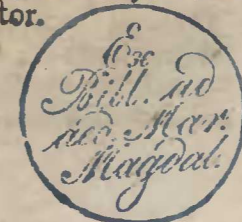 tor.
Ex
Bibl. ad
aed. Mar.
Magdal.